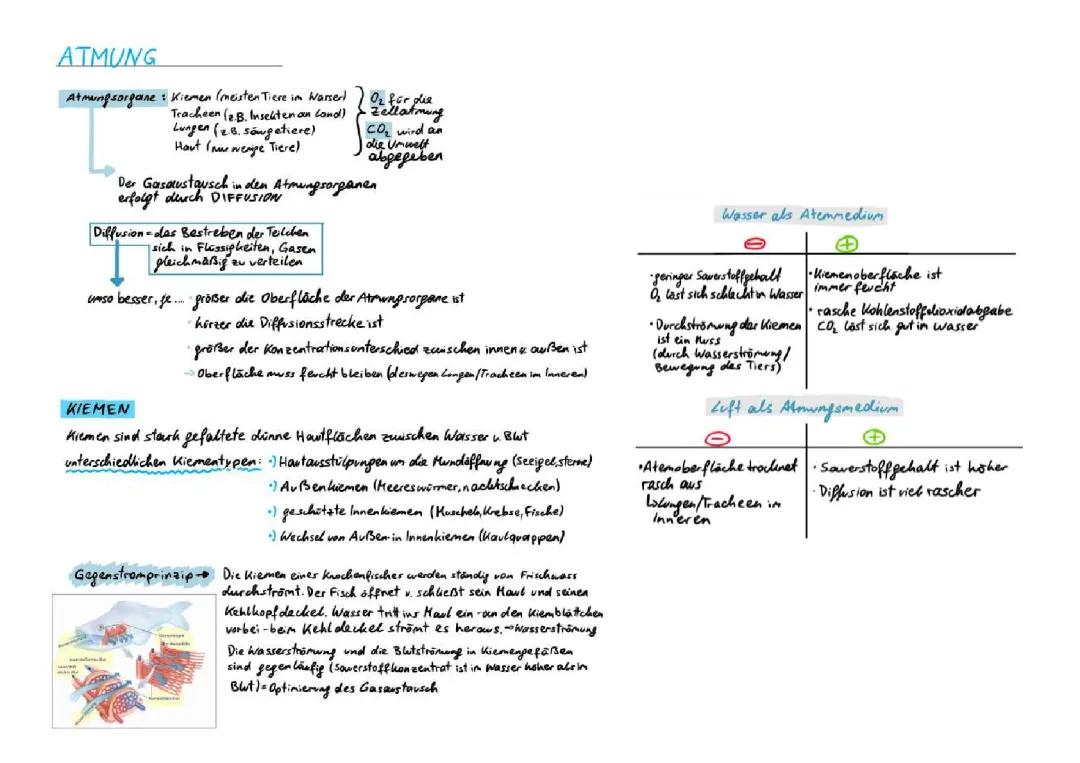 ATMUNG
Atmungsorgane : Kiemen (meisten Tiere im Wasser)
Tracheen (z.B. Insekten an Land)
Lungen (z.B. säugetiere)
Haut (nur wenige Tiere)
O₂ für die
Zellatmung
CO₂ wird an
die Umwelt
abgegeben
Der Gasaustausch in den Atmungsorganen
erfolgt durch DIFFUSION
Diffusion = das Bestreben der Teilchen
sich in Flüssigkeiten, Gasen
gleichmäßig zu verteilen
umso besser, je .... größer die Oberfläche der Atmungsorgane ist
kürzer die Diffusionsstrecke ist
größer der Konzentrationsunterschied zwischen innen & außen ist
→ Oberfläche muss feucht bleiben (deswegen Lungen/Tracheen im Inneren)
KIEMEN
Kiemen sind stark gefaltete dünne Hautflächen zwischen Wasser u. Blut
unterschiedlichen Kiementypen: •) Hautausstülpungen um die Mundöffnung (Seeigel, sterne)
•) Außenkiemen (Meereswürmer, nacktschnecken)
•) geschützte Innenkiemen (Muscheln, Krebse, Fische)
•) Wechsel von Außen- in Innenkiemen (Kaulquappen)
Gegenstromprinzip → Die Kiemen eines Knochenfischer werden ständig von Frischwass
durchströmt. Der Fisch öffnet u. schließt sein Maul und seinen
Kehlkopfdeckel. Wasser tritt ins Maul ein - an den Kiemblättchen
vorbei - beim Kehldeckel strömt es heraus. → Wasserströmung
Die Wasserströmung und die Blutströmung in Kiemengefäßen
sind gegenläufig (Sauerstoffkonzentrat ist im Wasser höher als im
Blut) = Optimierung des Gasaustausch
Wasser als Atemmedium
⊖ ⊕
• geringer Sauerstoffgehalt
O₂ löst sich schlecht in Wasser
• Durchströmung der Kiemen
ist ein Muss
(durch Wasserströmung/
Bewegung des Tiers)
• Kiemenoberfläche ist
immer feucht
• rasche Kohlenstoffdioxidabgabe
CO₂ löst sich gut in Wasser
Luft als Atmungsmedium
⊖ ⊕
• Atemoberfläche trocknet
rasch aus
Lungen/Tracheen im
Inneren
• Sauerstoffgehalt ist höher
• Diffusion ist viel rascher